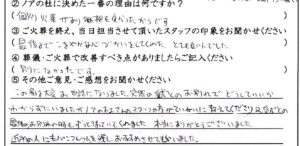 ②ノアの杜に決めた一番の理由は何ですか？
(個別火葬があり価格も良かったからです
③ご火葬を終え、当日担当させて頂いたスタッフの印象をお聞かせください
(最後までこまやかな心づかいをしてくれた、とても良い人でした
④葬儀・ご火葬で改善すべき点がありましたらご記入ください
特になかったです。
⑤その他ご意見・ご感想をお聞かせください
この度は大変お世話になりました 突然の愛犬とのお別れでどうしていいか
わからずにいましたが ノアのみなさんのスタッフの方がていねいに教えてくださり
最後のお別れの時もずっと待っていてくれました 本当にありがとうございました
近所の人にもパンフレットを渡しおすすめさせて頂いました。